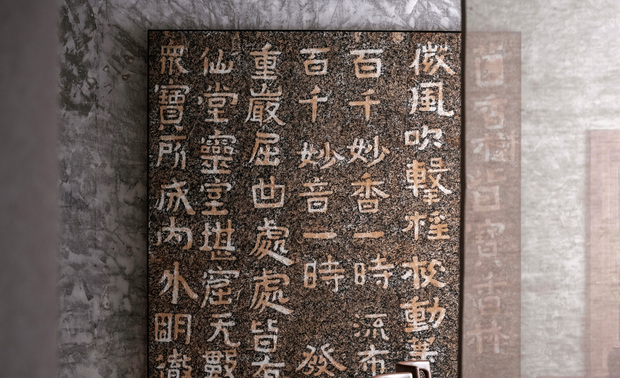 微風吹擊枝動
百千妙香一時流布
百千妙音一時發
重巖屈曲處處皆有
仙堂靈室堪窟无數
眾寶所成內外明徹